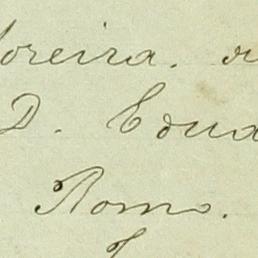 oreira. a
D. Edua
Romo.